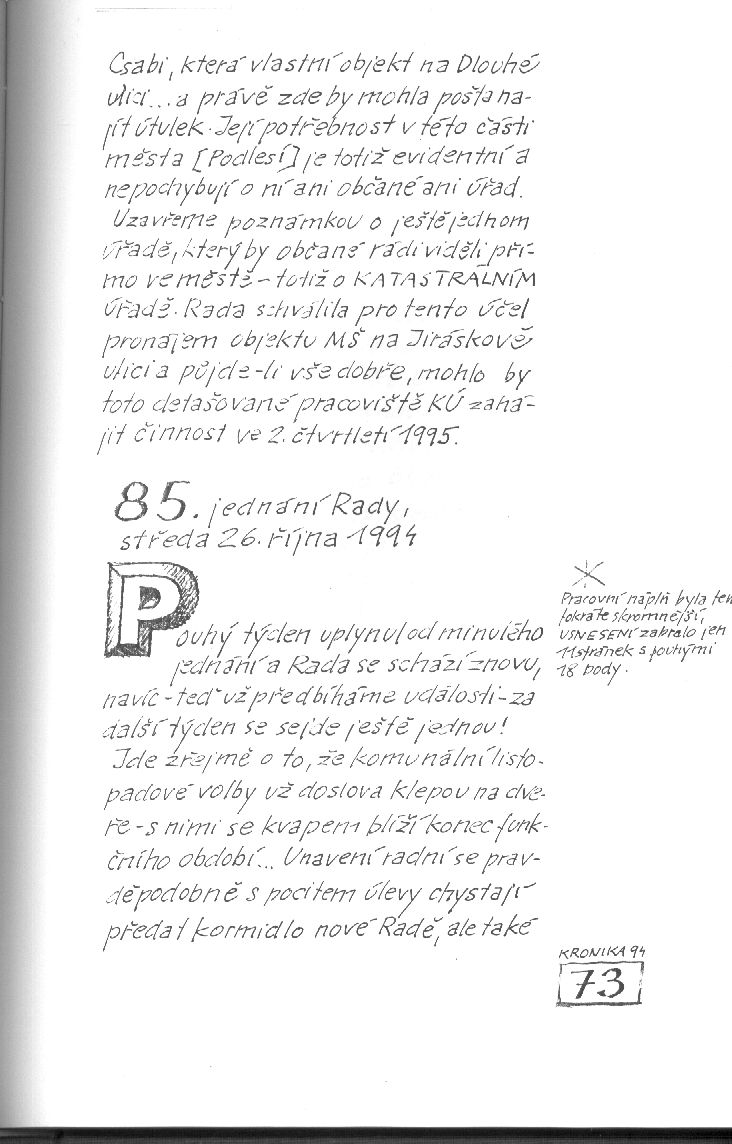 Csabi, která vlastní objekt na Dlouhé
ulici...a právě zde by mohla pošta na-
jít útulek. Její potřebnost v této části
města [Podlesí] je totiž evidentní a
nepochybují o ní ani občané ani úřad.
Uzavřeme poznámkou o ještě jednom
úřadě, který by občané rádi viděli pří-
mo ve městě - totiž o KATASTRÁLNÍM
úřadě. Rada schválila pro tento účel
pronájem objektu MŠ na Jiráskově
ulici a půjde-li vše dobře, mohlo by
toto detašované pracoviště KÚ zahá-
jit činnost ve 2. čtvrtletí 1995.
85. jednání Rady,
středa 26. října 1994
Pouhý týden uplynul od minulého
jednání a Rada se schází znovu,
navíc - teď už předbíháme události - za
další týden se sejde ještě jednou!
Jde zřejmě o to, že komunální listo-
padové volby už doslova klepou na dve-
ře - s nimi se kvapem blíží konec funk-
čního období... Unavení radní se prav-
děpodobně s pocitem úlevy chystají
předat kormidlo nové Radě, ale také
Pracovní náplň byla ten
tokráte skromnější,
USNESENÍ zabralo jen
11 stránek s pouhými
18 body.
KRONIKA 94
73